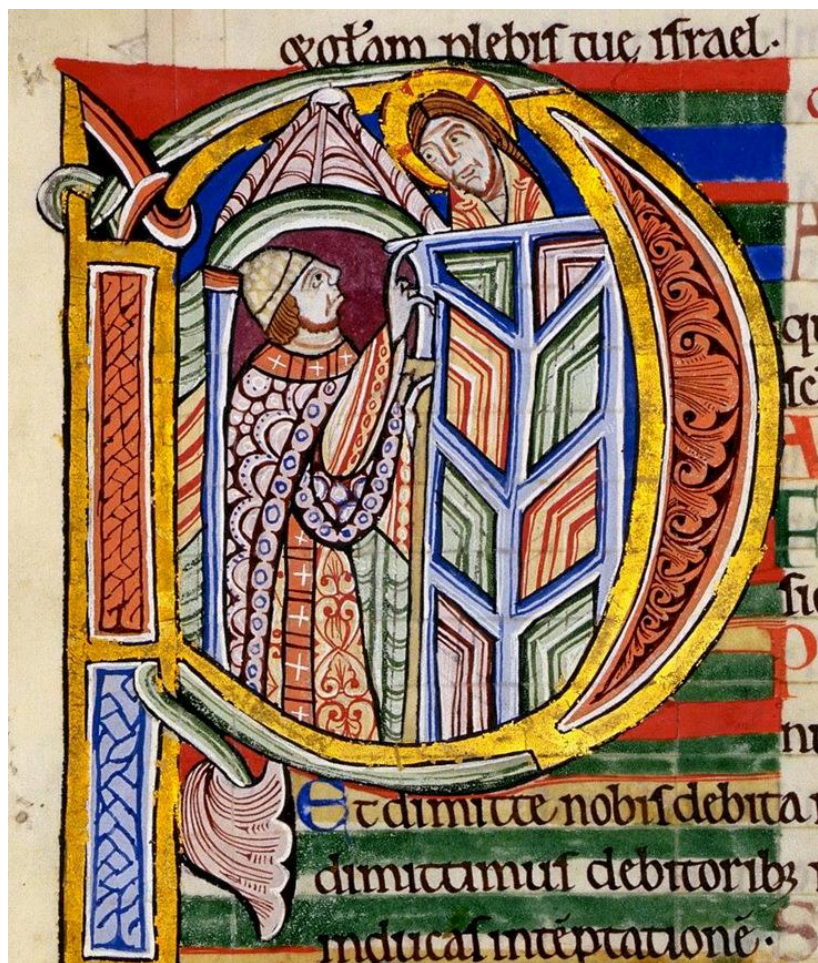 & gl̃am plebiſ tue iſrael·
P
Et dimitte nobiſ debita
dimittimuſ debitoribꝫ
inducaſ intẽptationẽ·